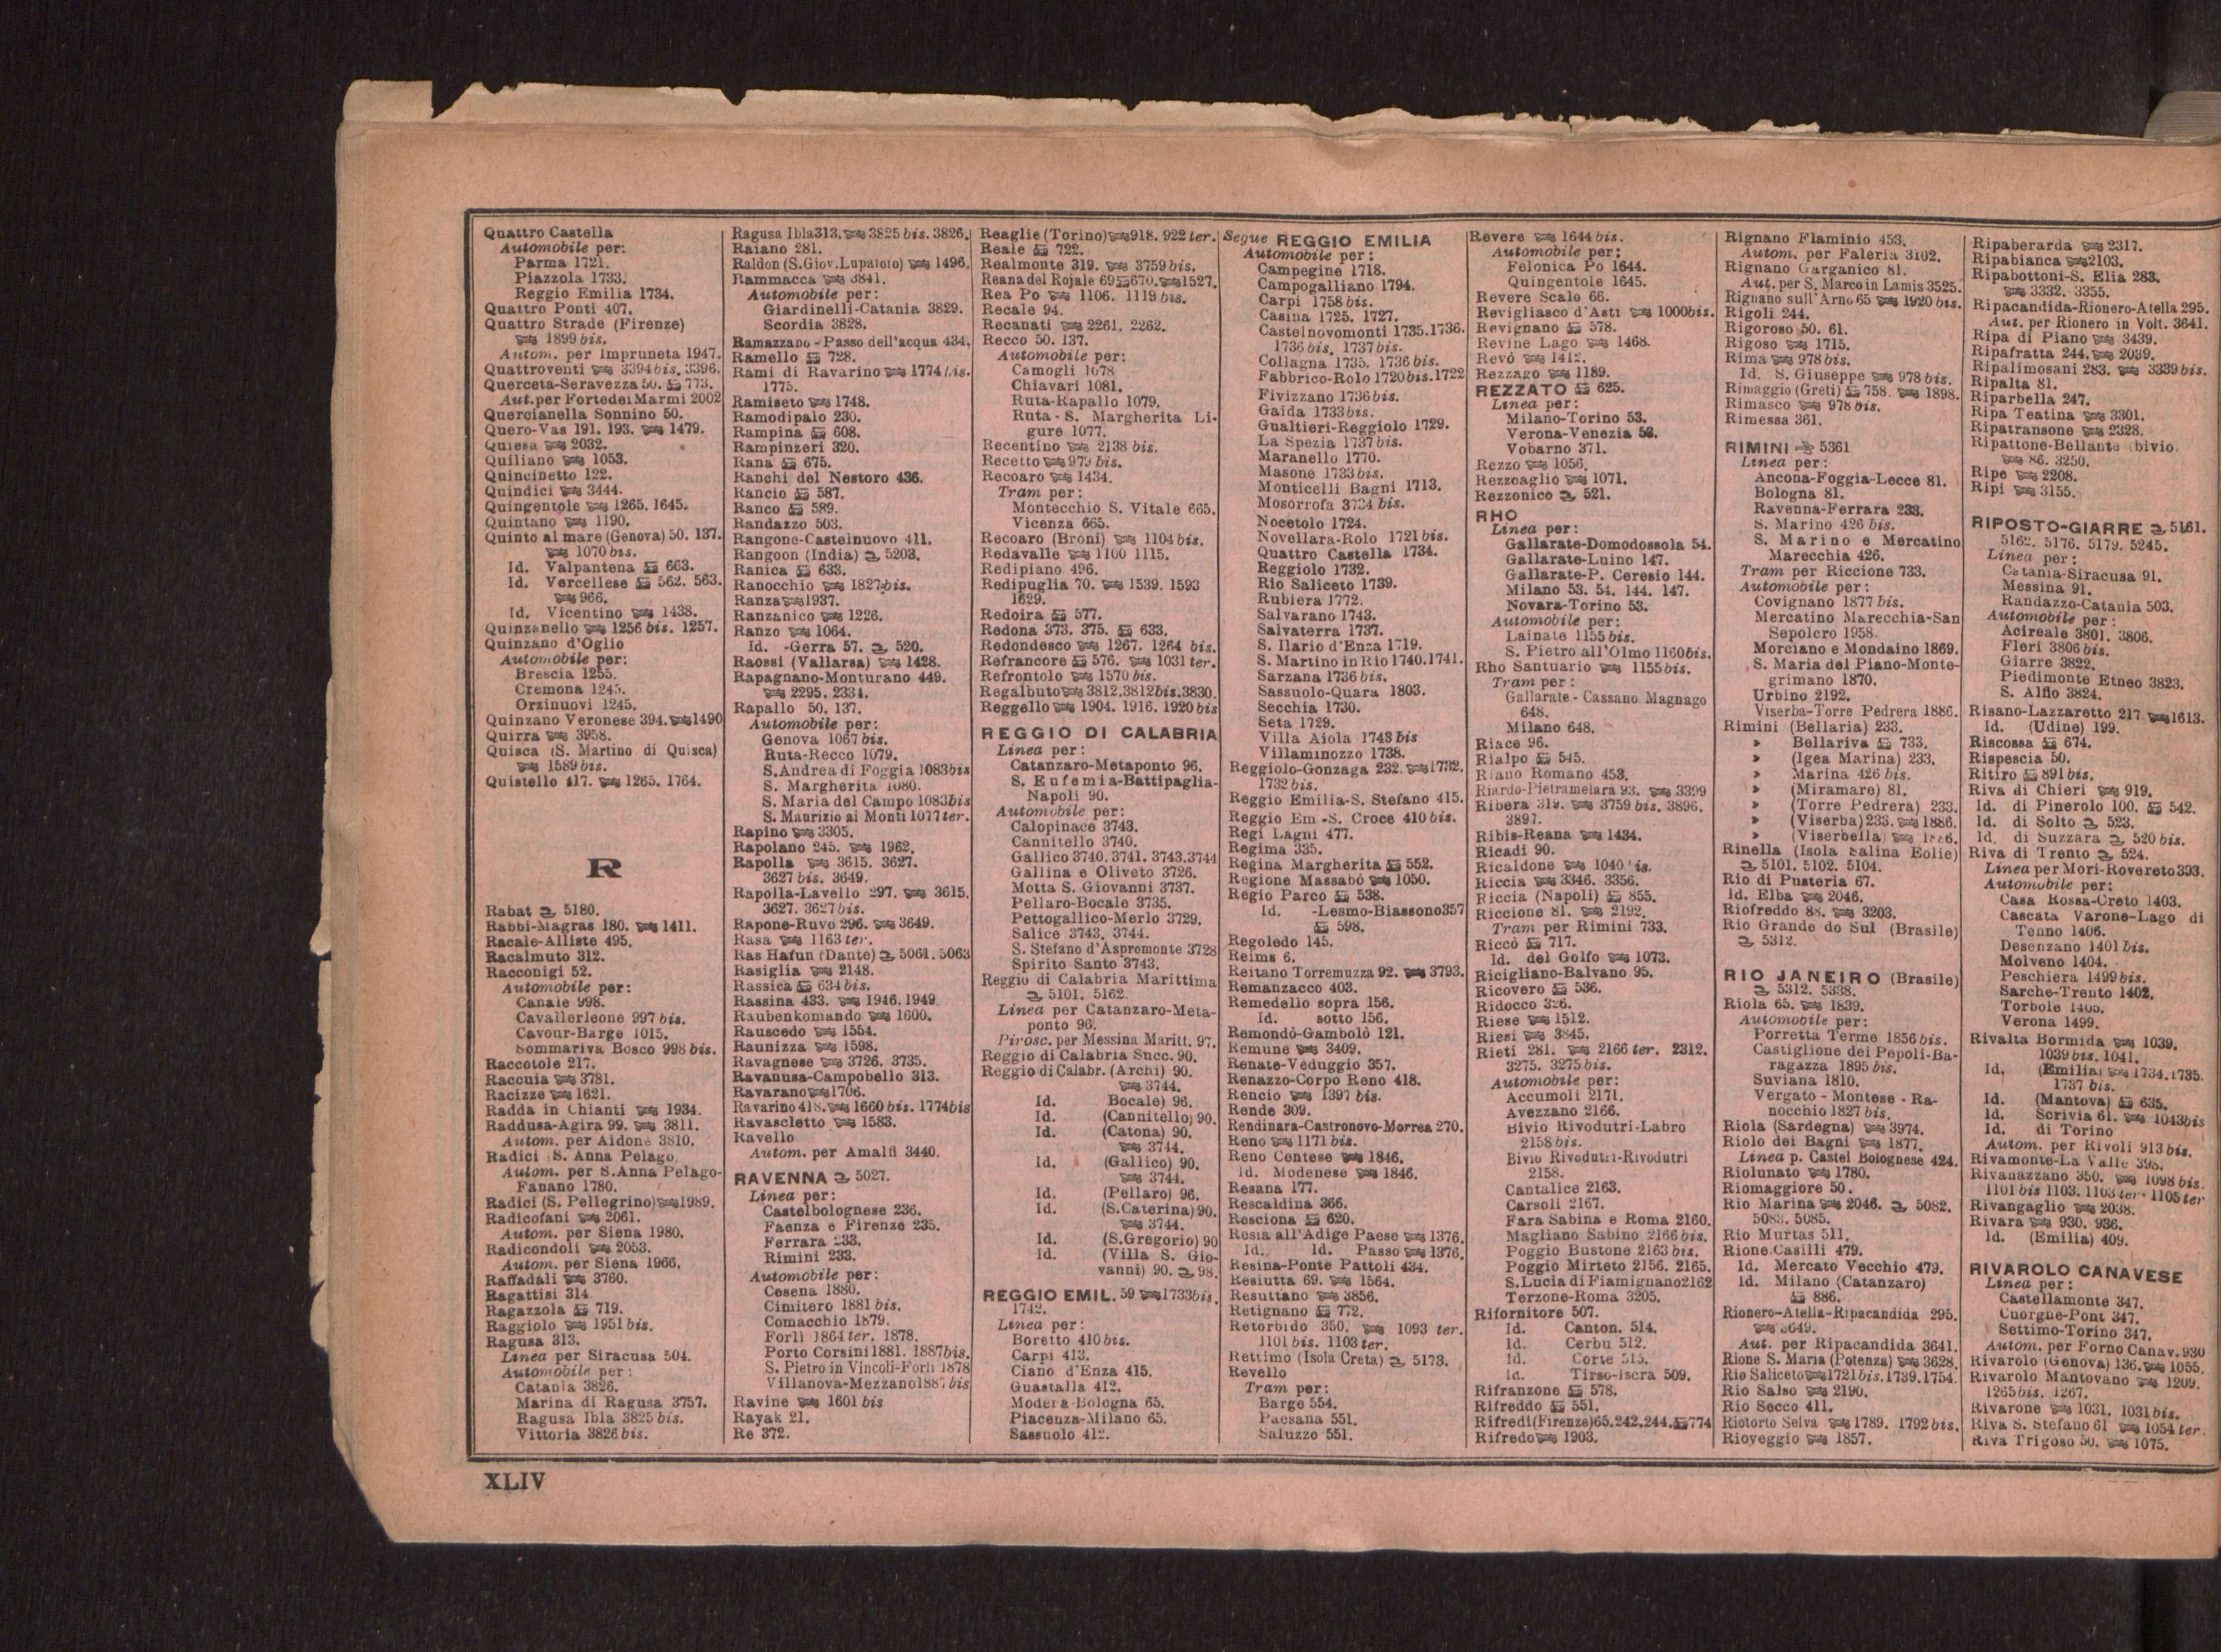 Quattro Castella
Automobile per:
Parma 1721.
Piazzola 1733.
Reggio Emilia 1734.
Quattro Ponti 407.
Quattro Strade (Firenze)
1899 bis.
Autom. per Impruneta 1947.
Quattroventi 3394 bis. 3396.
Querceta-Seravezza 50. 773.
Aut. per Forte dei Marmi 2002
Quercianella Sonnino 50.
Quero-Vas 191. 193. 1479.
Quiesa 2032.
Quiliano 1053.
Quincinetto 122.
Quindici 3444.
Quingentole 1265. 1645.
Quintano 1190.
Quinto al mare (Genova) 50. 137.
1070 bis.
Id. Valpantena 663.
Id. Vercellese 562. 563.
966.
Id. Vicentino 1438.
Quinzanello 1256 bis. 1257.
Quinzano d'Oglio
Automobile per:
Brescia 1255.
Cremona 1245.
Orzinuovi 1245.
Quinzano Veronese 394. 1490
Quirra 3958.
Quisca (S. Martino di Quisca)
1589 bis.
Quistello 417. 1265. 1764.
R
Rabat 5180.
Rabbi-Magras 180. 1411.
Racale-Alliste 495.
Racalmuto 312.
Racconigi 52.
Automobile per:
Canale 998.
Cavallerleone 997 bis.
Cavour-Barge 1015.
Sommariva Bosco 998 bis.
Raccotole 217.
Raccuia 3781.
Racizze 1621.
Radda in Chianti 1934.
Raddusa-Agira 99. 3811.
Autom. per Aidone 3810.
Radici (S. Anna Pelago)
Autom. per S. Anna Pelago-
Fanano 1780.
Radici (S. Pellegrino) 1989.
Radicofani 2061.
Autom. per Siena 1980.
Radicondoli 2053.
Autom. per Siena 1966.
Raffadali 3760.
Ragattisi 314
Ragazzola 719.
Raggiolo 1951 bis.
Ragusa 313.
Linea per Siracusa 504.
Automobile per:
Catania 3826.
Marina di Ragusa 3757.
Ragusa Ibla 3825 bis.
Vittoria 3826 bis.
Ragusa Ibla 313. 3825 bis. 3826.
Raiano 281.
Raldon (S. Giov. Lupatoto) 1496.
Rammacca 3841.
Automobile per:
Giardinelli-Catania 3829.
Scordia 3828.
Ramazzano - Passo dell'acqua 434.
Ramello 728.
Rami di Ravarino 1774 bis.
1775.
Ramiseto 1748.
Ramodipalo 230.
Rampina 608.
Rampinzeri 320.
Rana 675.
Ranchi del Nestoro 436.
Rancio 587.
Ranco 589.
Randazzo 503.
Rangone-Castelnuovo 411.
Rangoon (India) 5203.
Ranica 633.
Ranocchio 1827 bis.
Ranza 1937.
Ranzanico 1226.
Ranzo 1064.
Id. -Gerra 57. 520.
Raossi (Vallarsa) 1428.
Rapagnano-Monturano 449.
2295. 2334.
Rapallo 50. 137.
Automobile per:
Genova 1067 bis.
Ruta-Recco 1079.
S. Andrea di Foggia 1083 bis
S. Margherita 1080.
S. Maria del Campo 1083 bis
S. Maurizio ai Monti 1077 ter.
Rapino 3305.
Rapolano 245. 1962.
Rapolla 3615. 3627.
3627 bis. 3649.
Rapolla-Lavello 297. 3615.
3627. 3627 bis.
Rapone-Ruvo 296. 3649.
Rasa 1163 ter.
Ras Hafun (Dante) 5061. 5063
Rasiglia 2148.
Rassica 634 bis.
Rassina 433. 1946. 1949
Raubenkomando 1600.
Rauscedo 1554.
Raunizza 1598.
Ravagnese 3726. 3735.
Ravanusa-Campobello 313.
Ravarano 1706.
Ravarino 418. 1660 bis. 1774 bis
Ravascletto 1583.
Ravello
Autom. per Amalfi 3440.
RAVENNA 5027.
Linea per:
Castelbolognese 236.
Faenza e Firenze 235.
Ferrara 233.
Rimini 233.
Automobile per:
Cesena 1880.
Cimitero 1881 bis.
Comacchio 1879.
Forlì 1864 ter. 1878.
Porto Corsini 1881. 1887 bis.
S. Pietro in Vincoli-Forlì 1878
Villanova-Mezzano 1887 bis
Ravine 1601 bis
Rayak 21.
Re 372.
Reaglie (Torino) 918. 922 ter.
Reale 722.
Realmonte 319. 3759 bis.
Reana del Rojale 69 670. 1527.
Rea Po 1106. 1119 bis.
Recale 94.
Recanati 2261. 2262.
Recco 50. 137.
Automobile per:
Camogli 1078
Chiavari 1081.
Ruta-Rapallo 1079.
Ruta - S. Margherita Li-
gure 1077.
Recentino 2138 bis.
Recetto 979 bis.
Recoaro 1434.
Tram per:
Montecchio S. Vitale 665.
Vicenza 665.
Recoaro (Broni) 1104 bis.
Redavalle 1100 1115.
Redipiano 496.
Redipuglia 70. 1539. 1593
1629.
Redoira 577.
Redona 373. 375. 633.
Redondesco 1267. 1264 bis.
Refrancore 576. 1031 ter.
Refrontolo 1570 bis.
Regalbuto 3812. 3812 bis. 3830.
Reggello 1904. 1916. 1920 bis
REGGIO DI CALABRIA
Linea per:
Catanzaro-Metaponto 96.
S. Eufemia-Battipaglia-
Napoli 90.
Automobile per:
Calopinace 3743.
Cannitello 3740.
Gallico 3740. 3741. 3743. 3744
Gallina e Oliveto 3726.
Motta S. Giovanni 3737.
Pellaro-Bocale 3735.
Pettogallico-Merlo 3729.
Salice 3743. 3744.
S. Stefano d'Aspromonte 3728
Spirito Santo 3743.
Reggio di Calabria Marittima
5101. 5162.
Linea per Catanzaro-Meta-
ponto 96.
Pirosc. per Messina Maritt. 97.
Reggio di Calabria Succ. 90.
Reggio di Calabr. (Archi) 90.
3744.
Id. Bocale) 96.
Id. (Cannitello) 90.
Id. (Catona) 90.
3744.
Id. (Gallico) 90.
3744.
Id. (Pellaro) 96.
Id. (S. Caterina) 90.
3744.
Id. (S. Gregorio) 90
Id. (Villa S. Gio-
vanni) 90. 98.
REGGIO EMIL. 59 1733 bis.
1742.
Linea per:
Boretto 410 bis.
Carpi 413.
Ciano d'Enza 415.
Guastalla 412.
Modena-Bologna 65.
Piacenza-Milano 65.
Sassuolo 412.
Segue REGGIO EMILIA
Automobile per:
Campegine 1718.
Campogalliano 1794.
Carpi 1758 bis.
Casina 1725. 1727.
Castelnovomonti 1735. 1736.
1736 bis. 1737 bis.
Collagna 1735. 1736 bis.
Fabbrico-Rolo 1720 bis. 1722
Fivizzano 1736 bis.
Gaida 1733 bis.
Gualtieri-Reggiolo 1729.
La Spezia 1737 bis.
Maranello 1770.
Masone 1733 bis.
Monticelli Bagni 1713.
Mosorrofa 3734 bis.
Nocetolo 1724.
Novellara-Rolo 1721 bis.
Quattro Castella 1734.
Reggiolo 1732.
Rio Saliceto 1739.
Rubiera 1772.
Salvarano 1743.
Salvaterra 1737.
S. Ilario d'Enza 1719.
S. Martino in Rio 1740. 1741.
Sarzana 1736 bis.
Sassuolo-Quara 1803.
Secchia 1730.
Seta 1729.
Villa Aiola 1743 bis
Villaminozzo 1738.
Reggiolo-Gonzaga 232. 1732.
1732 bis.
Reggio Emilia-S. Stefano 415.
Reggio Em.-S. Croce 410 bis.
Regi Lagni 477.
Regima 335.
Regina Margherita 552.
Regione Massabò 1050.
Regio Parco 538.
Id. -Lesmo-Biassono 357
598.
Regoledo 145.
Reims 6.
Reitano Torremuzza 92. 3793.
Remanzacco 403.
Remedello sopra 156.
Id. sotto 156.
Remondò-Gambolò 121.
Remune 3409.
Renate-Veduggio 357.
Renazzo-Corpo Reno 418.
Rencio 1397 bis.
Rende 309.
Rendinara-Castronovo-Morrea 270.
Reno 1171 bis.
Reno Centese 1846.
Id. Modenese 1846.
Resana 177.
Rescaldina 366.
Resciona 620.
Resia all'Adige Paese 1376.
Id. Id. Passo 1376.
Resina-Ponte Pattoli 434.
Resiutta 69. 1564.
Resuttano 3856.
Retignano 772.
Retorbido 350. 1093 ter.
1101 bis. 1103 ter.
Rettimo (Isola Creta) 5173.
Revello
Tram per:
Barge 554.
Paesana 551.
Saluzzo 551.
Revere 1644 bis.
Automobile per:
Felonica Po 1644.
Quingentole 1645.
Revere Scalo 66.
Revigliasco d'Asti 1000 bis.
Revignano 578.
Revine Lago 1468.
Revò 1412.
Rezzago 1189.
REZZATO 625.
Linea per:
Milano-Torino 53.
Verona-Venezia 53.
Vobarno 371.
Rezzo 1056.
Rezzoaglio 1071.
Rezzonico 521.
RHO
Linea per:
Gallarate-Domodossola 54.
Gallarate-Luino 147.
Gallarate-P. Ceresio 144.
Milano 53. 54. 144. 147.
Novara-Torino 53.
Automobile per:
Lainate 1155 bis.
S. Pietro all'Olmo 1160 bis.
Rho Santuario 1155 bis.
Tram per:
Gallarate - Cassano Magnago
648.
Milano 648.
Riace 96.
Rialpo 545.
Riano Romano 453.
Riardo-Pietramelara 93. 3399
Ribera 319. 3759 bis. 3896.
3897.
Ribis-Reana 1434.
Ricadi 90.
Ricaldone 1040 bis.
Riccia 3346. 3356.
Riccia (Napoli) 855.
Riccione 81. 2192.
Tram per Rimini 733.
Riccò 717.
Id. del Golfo 1073.
Ricigliano-Balvano 95.
Ricovero 536.
Ridocco 326.
Riese 1512.
Riesi 3845.
Rieti 281. 2166 ter. 2312.
3275. 3275 bis.
Automobile per:
Accumoli 2171.
Avezzano 2166.
Bivio Rivodutri-Labro
2158 bis.
Bivio Rivodutri-Rivodutri
2158.
Cantalice 2163.
Carsoli 2167.
Fara Sabina e Roma 2160.
Magliano Sabino 2166 bis.
Poggio Bustone 2163 bis.
Poggio Mirteto 2156. 2165.
S. Lucia di Fiamignano 2162
Terzone-Roma 3205.
Rifornitore 507.
Id. Canton. 514.
Id. Cerbu 512.
Id. Corte 515.
Id. Tirso-Iscra 509.
Rifranzone 578.
Rifreddo 551.
Rifredi (Firenze) 65. 242. 244. 774
Rifredo 1903.
Rignano Flaminio 453.
Autom. per Faleria 3102.
Rignano Garganico 81.
Aut. per S. Marco in Lamis 3525.
Rignano sull'Arno 65 1920 bis.
Rigoli 244.
Rigoroso 50. 61.
Rigoso 1715.
Rima 978 bis.
Id. S. Giuseppe 978 bis.
Rimaggio (Greti) 758. 1898.
Rimasco 978 bis.
Rimessa 361.
RIMINI 5361
Linea per:
Ancona-Foggia-Lecce 81.
Bologna 81.
Ravenna-Ferrara 233.
S. Marino 426 bis.
S. Marino e Mercatino
Marecchia 426.
Tram per Riccione 733.
Automobile per:
Covignano 1877 bis.
Mercatino Marecchia-San
Sepolcro 1958.
Morciano e Mondaino 1869.
S. Maria del Piano-Monte-
grimano 1870.
Urbino 2192.
Viserba-Torre Pedrera 1886.
Rimini (Bellaria) 233.
» Bellariva 733.
» (Igea Marina) 233.
» Marina 426 bis.
» (Miramare) 81.
» (Torre Pedrera) 233.
» (Viserba) 233. 1886.
» (Viserbella) 1886.
Rinella (Isola Salina Eolie)
5101. 5102. 5104.
Rio di Pusteria 67.
Id. Elba 2046.
Riofreddo 88. 3203.
Rio Grande do Sul (Brasile)
5312.
RIO JANEIRO (Brasile)
5312. 5338.
Riola 65. 1839.
Automobile per:
Porretta Terme 1856 bis.
Castiglione dei Pepoli-Ba-
ragazza 1895 bis.
Suviana 1810.
Vergato - Montese - Ra-
nocchio 1827 bis.
Riola (Sardegna) 3974.
Riolo dei Bagni 1877.
Linea p. Castel Bolognese 424.
Riolunato 1780.
Riomaggiore 50.
Rio Marina 2046. 5082.
5083. 5085.
Rio Murtas 511.
Rione Casilli 479.
Id. Mercato Vecchio 479.
Id. Milano (Catanzaro)
886.
Rionero-Atella-Ripacandida 295.
3649.
Aut. per Ripacandida 3641.
Rione S. Maria (Potenza) 3628.
Rio Saliceto 1721 bis. 1739. 1754.
Rio Salso 2190.
Rio Secco 411.
Riotorto Selva 1789. 1792 bis.
Rioveggio 1857.
Ripaberarda 2317.
Ripabianca 2103.
Ripabottoni-S. Elia 283.
3332. 3355.
Ripacandida-Rionero-Atella 295.
Aut. per Rionero in Volt. 3641.
Ripa di Piano 3439.
Ripafratta 244. 2039.
Ripalimosani 283. 3339 bis.
Ripalta 81.
Riparbella 247.
Ripa Teatina 3301.
Ripatransone 2328.
Ripattone-Bellante (bivio)
86. 3250.
Ripe 2208.
Ripi 3155.
RIPOSTO-GIARRE 5161.
5162. 5176. 5179. 5245.
Linea per:
Catania-Siracusa 91.
Messina 91.
Randazzo-Catania 503.
Automobile per:
Acireale 3801. 3806.
Fleri 3806 bis.
Giarre 3822.
Piedimonte Etneo 3823.
S. Alfio 3824.
Risano-Lazzaretto 217 1613.
Id. (Udine) 199.
Riscossa 674.
Rispescia 50.
Ritiro 891 bis.
Riva di Chieri 919.
Id. di Pinerolo 100. 542.
Id. di Solto 523.
Id. di Suzzara 520 bis.
Riva di Trento 524.
Linea per Mori-Rovereto 393.
Automobile per:
Casa Rossa-Creto 1403.
Cascata Varone-Lago di
Tenno 1406.
Desenzano 1401 bis.
Molveno 1404.
Peschiera 1499 bis.
Sarche-Trento 1402.
Torbole 1405.
Verona 1499.
Rivalta Bormida 1039.
1039 bis. 1041.
Id. (Emilia) 1734. 1735.
1737 bis.
Id. (Mantova) 635.
Id. Scrivia 61. 1043 bis
Id. di Torino
Autom. per Rivoli 913 bis.
Rivamonte-La Valle 398.
Rivanazzano 350. 1098 bis.
1101 bis 1103. 1103 ter. 1105 ter
Rivangaglio 2038.
Rivara 930. 936.
Id. (Emilia) 409.
RIVAROLO CANAVESE
Linea per:
Castellamonte 347.
Cuorgne-Pont 347.
Settimo-Torino 347.
Autom. per Forno Canav. 930
Rivarolo (Genova) 136. 1055.
Rivarolo Mantovano 1209.
1265 bis. 1267.
Rivarone 1031. 1031 bis.
Riva S. Stefano 61 1054 ter
Riva Trigoso 50. 1075.
XLIV